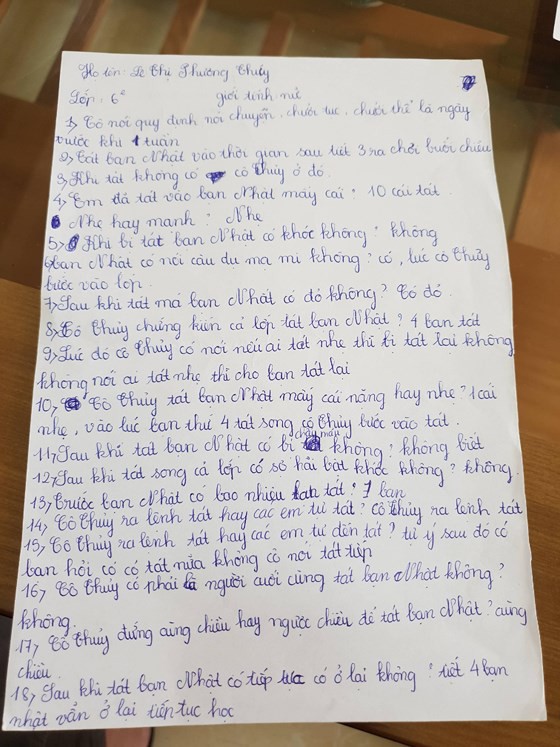 Họ tên: Lê Thị Phương Thúy
Lớp: 6² giới tính nữ
1, Cô nói quy định nói chuyện, chưởi tục, chưởi thề là ngày
trước khi 1 tuần
2, Tát bạn Nhật vào thời gian sau tiết 3 ra chơi buổi chiều
3, Khi tát không có cô Thủy ở đó
4, Em đã tát vào bạn Nhật mấy cái? 10 cái tát.
Nhẹ hay mạnh? Nhẹ
5, Khi bị tát bạn Nhật có khóc không? không
6, bạn Nhật có nói câu đu mạ mi không? có, lúc cô Thủy
bước vào lớp.
7, Sau khi tát má bạn Nhật có đỏ không? Có đỏ.
8, Cô Thủy chứng kiến cả lớp tát bạn Nhật? 4 bạn tát
9, Lúc đó cô Thủy có nói nếu ai tát nhẹ thì bị tát lại không
không nói ai tát nhẹ thì cho bạn tát lại
10, Cô Thủy tát bạn Nhật mấy cái nặng hay nhẹ? 1 cái
nhẹ, vào lúc bạn thứ 4 tát song cô Thủy bước vào tát.
11, Sau khi tát bạn Nhật có bị chảy máu không? không biết
12, Sau khi tát song cả lớp có sợ hãi bật khóc không? không.
13, Trước bạn Nhật có bao nhiêu bạn tát? 7 bạn
14, Cô Thủy ra lệnh tát hay các em tự tát? Cô Thủy ra lệnh tát
15, Cô Thủy ra lệnh tát hay các em tự đến tát? tự ý sau đó có
bạn hỏi cô có tát nữa không cô nói tát tiếp
16, Cô Thủy có phải là người cuối cùng tát bạn Nhật không?
không.
17, Cô Thủy đứng cùng chiều hay ngược chiều để tát bạn Nhật? cùng
chiều.
18, Sau khi tát bạn Nhật có tiếp tục có ở lại không? tiết 4 bạn
nhật vẫn ở lại tiếp tục học